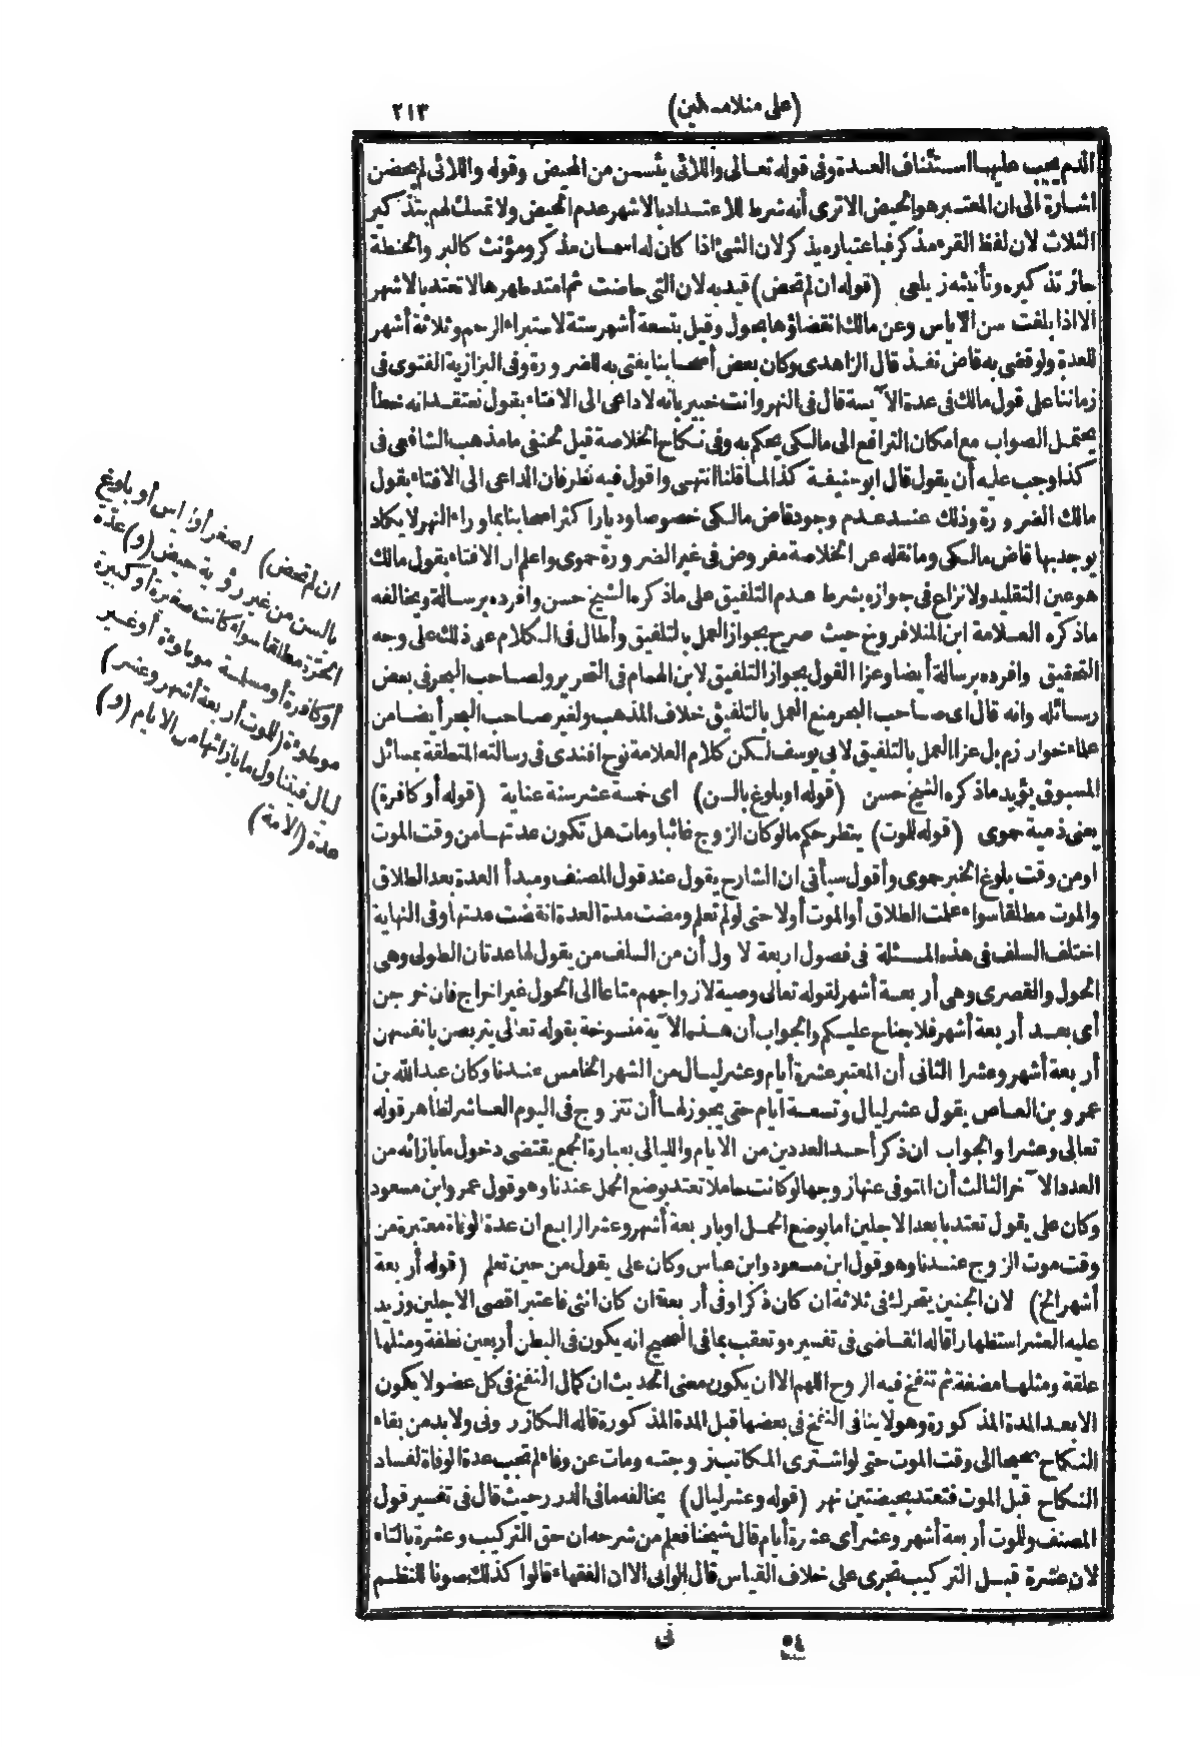 (على منلامسكين) ٢١٣
الدم يجب عليها استئناف العدة وفى قوله تعالى واللائى يئسن من المحيض وقوله واللائى لم يحضن
اشارة الى ان المعتبر هو الحيض الاترى أنه شرط للاعتداد بالاشهر عدم الحيض ولا تمسك لهم بتذكير
الثلاث لان لفظ القرء مذكر فباعتباره يذكر لان الشئ اذا كان له اسمان مذكر ومؤنث كالبر والحنطة
جاز تذكيره وتأنيثه زيلعى (قوله ان لم تحض) قيد به لان التى حاضت ثم امتد طهرها لا تعتد بالاشهر
الا اذا بلغت سن الاياس وعن مالك انقضاؤها بحول وقيل بتسعة أشهر ستة لاستبراء الرحم وثلاثة أشهر
للعدة ولو قضى به قاض نفذ قال الزاهدى وكان بعض أصحابنا يفتى به للضرورة وفى البزازية الفتوى فى
زماننا على قول مالك فى عدة الآيسة قال فى النهر وانت خبير بأنه لا داعى الى الافتاء بقول نعتقد انه خطأ
يحتمل الصواب مع امكان الترافع الى مالكى يحكم به وفى نكاح الخلاصة قيل لحنفى ما مذهب الشافعى فى
كذا وجب عليه أن يقول قال ابو حنيفة كذا لما قلنا انتهى واقول فيه نظر فان الداعى الى الافتاء بقول
مالك الضرورة وذلك عند عدم وجود قاض مالكى خصوصا وديار اكثر اصحابنا بما وراء النهر لا يكاد
يوجد بها قاض مالكى وما نقله عن الخلاصة مفروض فى غير الضرورة حموى واعلم ان الافتاء بقول مالك
هو عين التقليد ولا نزاع فى جوازه بشرط عدم التلفيق على ما ذكره الشيخ حسن وافرده برسالة ويخالفه
ماذكره العلامة ابن المنلا فروخ حيث صرح بجواز العمل بالتلفيق وأطال فى الكلام على ذلك على وجه
التحقيق وافرده برسالة أيضا وعزا القول بجواز التلفيق لابن الهمام فى التحرير ولصاحب البحر فى بعض
رسائله وانه قال اى صاحب البحر منع العمل بالتلفيق خلاف المذهب ولغير صاحب البحر أيضا من
علماء خوارزم بل عزا العمل بالتلفيق لابى يوسف لكن كلام العلامة نوح افندى فى رسالته المتعلقة بمسائل
المسبوق يؤيد ماذكره الشيخ حسن (قوله او بلوغ بالسن) اى خمسة عشر سنة عناية (قوله أو كافرة)
يعنى ذمية حموى (قوله للموت) ينظر حكم مالو كان الزوج غائبا ومات هل تكون عدتها من وقت الموت
او من وقت بلوغ الخبر حموى وأقول سيأتى ان الشارح يقول عند قول المصنف ومبدأ العدة بعد الطلاق
والموت مطلقا سواء علمت الطلاق أو الموت أولا حتى لو لم تعلم ومضت مدة العدة انقضت عدتها وفى النهاية
اختلف السلف فى هذه المسئلة فى فصول اربعة لاول أن من السلف من يقول لها عدتان الطولى وهى
الحول والقصرى وهى أربعة أشهر لقوله تعالى وصية لازواجهم متاعا الى الحول غير اخراج فان خرجن
أى بعد أربعة أشهر فلا جناح عليكم والجواب أن هذه الآية منسوخة بقوله تعالى يتربصن بانفسهن
أربعة أشهر وعشرا الثانى أن المعتبر عشرة أيام وعشر ليال من الشهر الخامس عندنا وكان عبد الله بن
عمرو بن العاص يقول عشر ليال وتسعة أيام حتى يجوز لها أن تتزوج فى اليوم العاشر لظاهر قوله
تعالى وعشرا والجواب ان ذكر أحد العددين من الايام والليالى بعبارة الجمع يقتضى دخول ما بازائه من
العدد الآخر الثالث أن المتوفى عنها زوجها لو كانت حاملا تعتد بوضع الحمل عندنا وهو قول عمر وابن مسعود
وكان على يقول تعتد بابعد الاجلين اما بوضع الحمل او باربعة أشهر وعشر الرابع ان عدة الوفاة معتبرة من
وقت موت الزوج عندنا وهو قول ابن مسعود وابن عباس وكان على يقول من حين تعلم (قوله أربعة
أشهر الخ) لان الجنين يتحرك فى ثلاثة ان كان ذكرا وفى أربعة ان كان انثى فاعتبر اقصى الاجلين وزيد
عليه العشر استظهارا قاله القاضى فى تفسيره وتعقب بما فى الصحيح انه يكون فى البطن أربعين نطفة ومثلها
علقة ومثلها مضغة ثم تنفخ فيه الروح اللهم الا ان يكون معنى الحديث ان كمال النفخ فى كل عضو لا يكون
الا بعد المدة المذكورة وهو لا ينافى النفخ فى بعضها قبل المدة المذكورة قاله الكازرونى ولا بد من بقاء
النكاح صحيحا الى وقت الموت حتى لو اشترى المكاتب زوجته ومات عن وفاء لم تجب عدة الوفاة لفساد
النكاح قبل الموت فتعتد بحيضتين نهر (قوله وعشر ليال) يخالفه مافى الدرر حيث قال فى تفسير قول
المصنف وللموت أربعة أشهر وعشر أى عشرة أيام قال شيخنا فعلم من شرحه ان حق التركيب وعشرة بالتاء
لان عشرة قبل التركيب تجرى على خلاف القياس قال الوانى الا ان الفقهاء قالوا كذلك صونا للنظم
٥٤ فى
ان لم تحض) لصغر أو اياس أو بلوغ
بالسن من غير رؤية حيض (و) عدة
الحرة مطلقا سواء كانت صغيرة أو كبيرة
أو كافرة أو مسلمة موطوءة أو غير
موطوءة (للموت أربعة أشهر وعشر)
ليال فيتناول ما بازائها من الايام (و)
عدة (الامة)